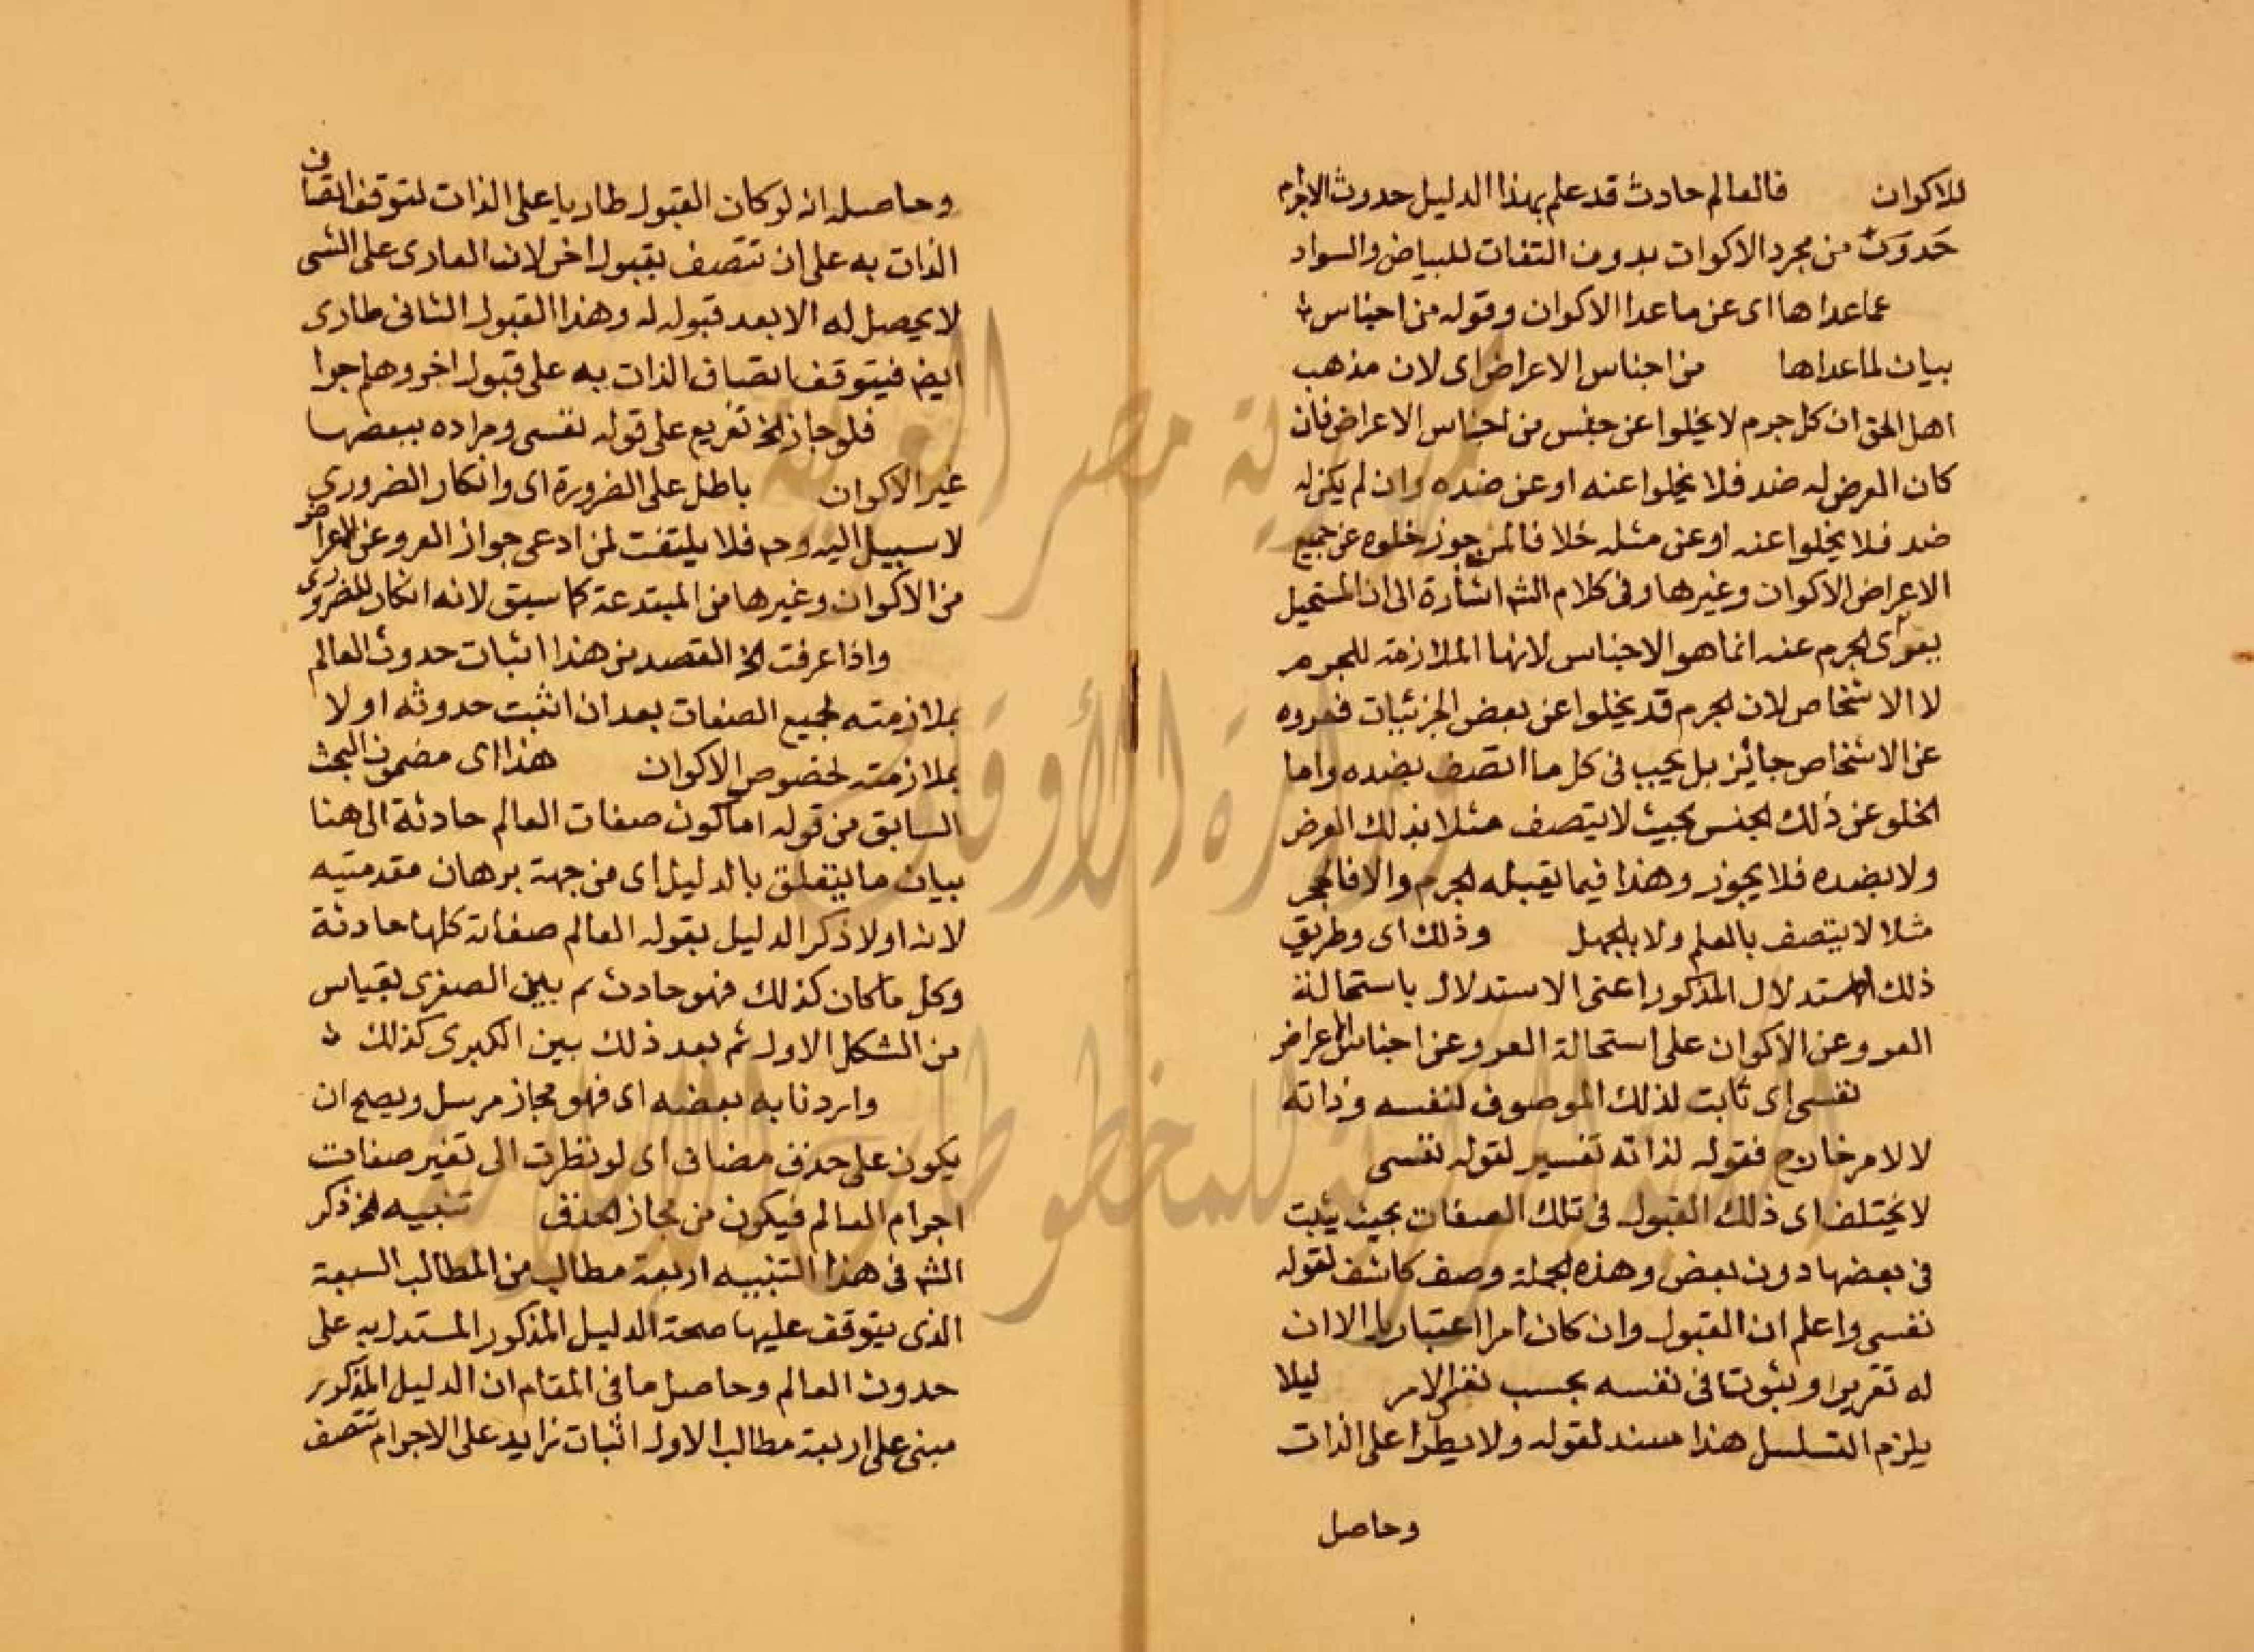 للاكوان فالعالم حادث قد علم بهذا الدليل حدوث الاجرام
حدوث من مجرد الاكوان بدون التفات للبياض والسواد
عما عداها اى عن ما عدا الاكوان وقوله من اجناس
بيان لما عداها من اجناس الاعراض اى لان مذهب
اهل الحق ان كل جرم لا يخلوا عن جنس من اجناس الاعراض فان
كان العرض له ضد فلا يخلوا عنه او عن ضده وان لم يكن له
ضد فلا يخلوا عنه او عن مثله خلافا لمن جوز خلوه عن جميع
الاعراض الاكوان وغيرها وفى كلام الشم اشارة الى ان المستحيل
الجرم عنه انما هو الاجناس لانها الملازمة للجرم
لا الاشخاص لان الجرم قد يخلوا عن بعض الجزئيات فعروه
عن الاشخاص جائز بل يجب فى كل ما اتصف بضده واما
الخلو عن ذلك الجنس بحيث لا يتصف مثلا بذلك العرض
ولا بضده فلا يجوز وهذا فيما يقبله الجرم والا فالحجر
مثلا لا يتصف بالعلم ولا بالجهل وذلك اى وطريق
ذلك الاستدلال المذكور اعنى الاستدلال باستحالة
العرو عن الاكوان على استحالة العرو عن اجناس الاعراض
نفسى اى ثابت لذلك الموصوف لنفسه وذاته
لا لامر خارج فقوله لذاته تفسير لقوله نفسى
لا يختلف اى ذلك القبول فى تلك الصفات بحيث يثبت
فى بعضها دون بعض وهذه الجملة وصف كاشف لقوله
نفسى واعلم ان القبول وان كان امرا اعتباريا الا ان
له تقريرا وثبوتا فى نفسه بحسب نفس الامر ليلا
يلزم التسلسل هذا مسند لقوله ولا يطرا على الذات
وحاصل
وحاصله انه لو كان القبول طاريا على الذات لتوقف اتصاف
الذات به على ان تتصف بقبول اخر لان العارى على الشى
لا يحصل له الا بعد قبوله له وهذا القبول الثانى طارى
ايضم فيتوقف اتصاف الذات به على قبول اخر وهلم جرا
فلو جاز الخ تفريع على قوله نفسى ومراده ببعضها
غير الاكوان باطل على الضرورة اى وانكار الضرورى
لا سبيل اليه وحم فلا يلتفت لمن ادعى جواز العرو عن الاعراض
من الاكوان وغيرها من المبتدعة كما سبق لانه انكار للضرورى
واذا عرفت الخ القصد من هذا اثبات حدوث العالم
بملازمته لجميع الصفات بعد ان اثبت حدوثه اولا
بملازمته لخصوص الاكوان هذا اى مضمون البحث
السابق من قوله اما كون صفات العالم حادثة الى هنا
بيان ما يتعلق بالدليل اى من جهة برهان مقدمتيه
لانه اولا ذكر الدليل بقوله العالم صفاته كلها حادثة
وكل ما كان كذلك فهو حادث ثم بين الصغرى بقياس
من الشكل الاول ثم بعد ذلك بين الكبرى كذلك
واردنا به بعضه اى فهو مجاز مرسل ويصح ان
يكون على حذف مضاف اى لو نظرت الى تغير صفات
اجرام العالم فيكون من مجاز الحذف تنبيه الخ ذكر
الشم فى هذا التنبيه اربعة مطالب من المطالب السبعة
الذى يتوقف عليها صحة الدليل المذكور المستدل به على
حدوث العالم وحاصل ما فى المقام ان الدليل المذكور
مبنى على اربعة مطالب الاول اثبات زايد على الاجرام تتصف